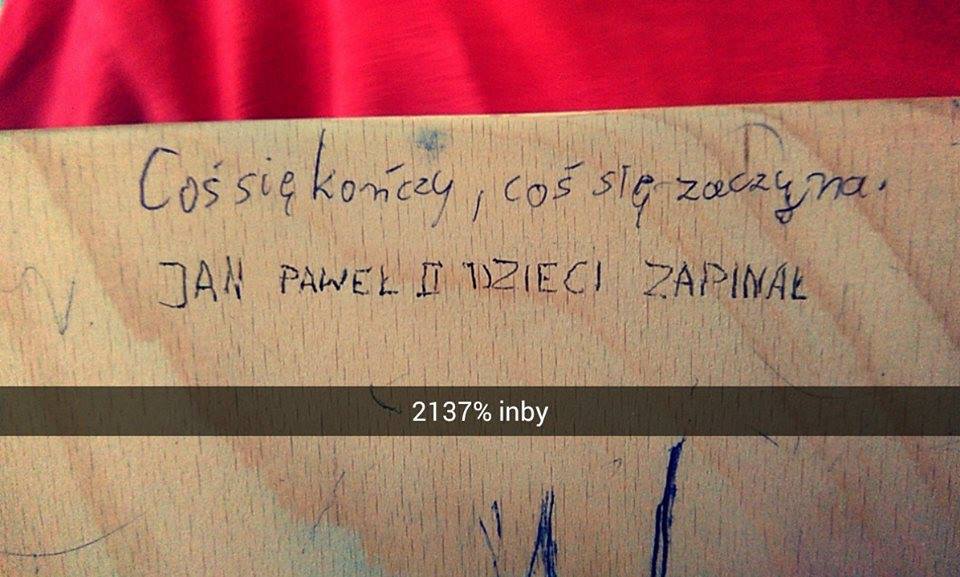 Coś się kończy, coś się zaczyna.
JAN PAWEŁ II DZIECI ZAPINAŁ
2137% inby